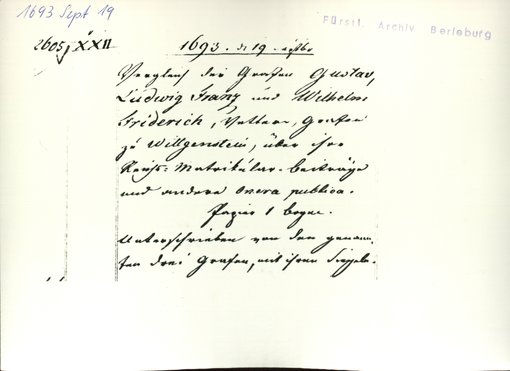 1693 Sept 19
Fürstl. Archiv Berleburg
2605, XXII
1693. d. 19. 7tbr
Vergleich der Grafen Gustav,
Ludwig Franz und Wilhelm
Friderich, Vettern, Grafen
zu Wittgenstein, über ihre
Reichs-Matrikular-Beiträge
und andere onera publica.
Papier 1 Bogen.
Unterschrieben von den genann-
ten drei Grafen, mit ihren Siegeln.